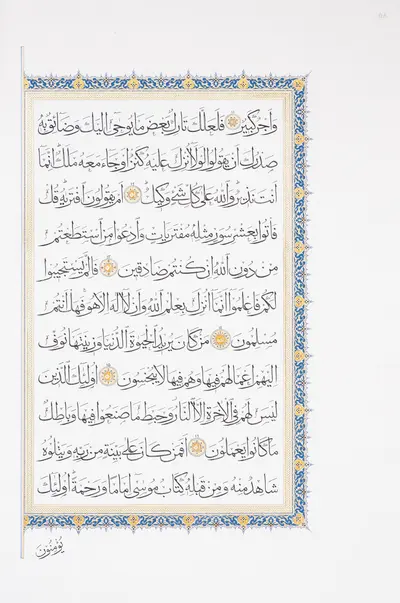 وأجر كبير فلعلك تارك بعض ما يوحى إليك وضائق به
صدرك أن يقولوا لولا أنزل عليه كنز أو جاء معه ملك إنما
أنت نذير والله على كل شيء وكيل أم يقولون افتريه قل
فأتوا بعشر سور مثله مفتريات وادعوا من استطعتم
من دون الله إن كنتم صادقين فإلم يستجيبوا
لكم فاعلموا أنما أنزل بعلم الله وأن لا إله إلا هو فهل أنتم
مسلمون من كان يريد الحيوة الدنيا وزينتها نوف
إليهم أعمالهم فيها وهم فيها لا يبخسون أولئك الذين
ليس لهم في الآخرة إلا النار وحبط ما صنعوا فيها وباطل
ما كانوا يعملون أفمن كان على بينة من ربه ويتلوه
شاهد منه ومن قبله كتاب موسى إماما ورحمة أولئك
يؤمنون